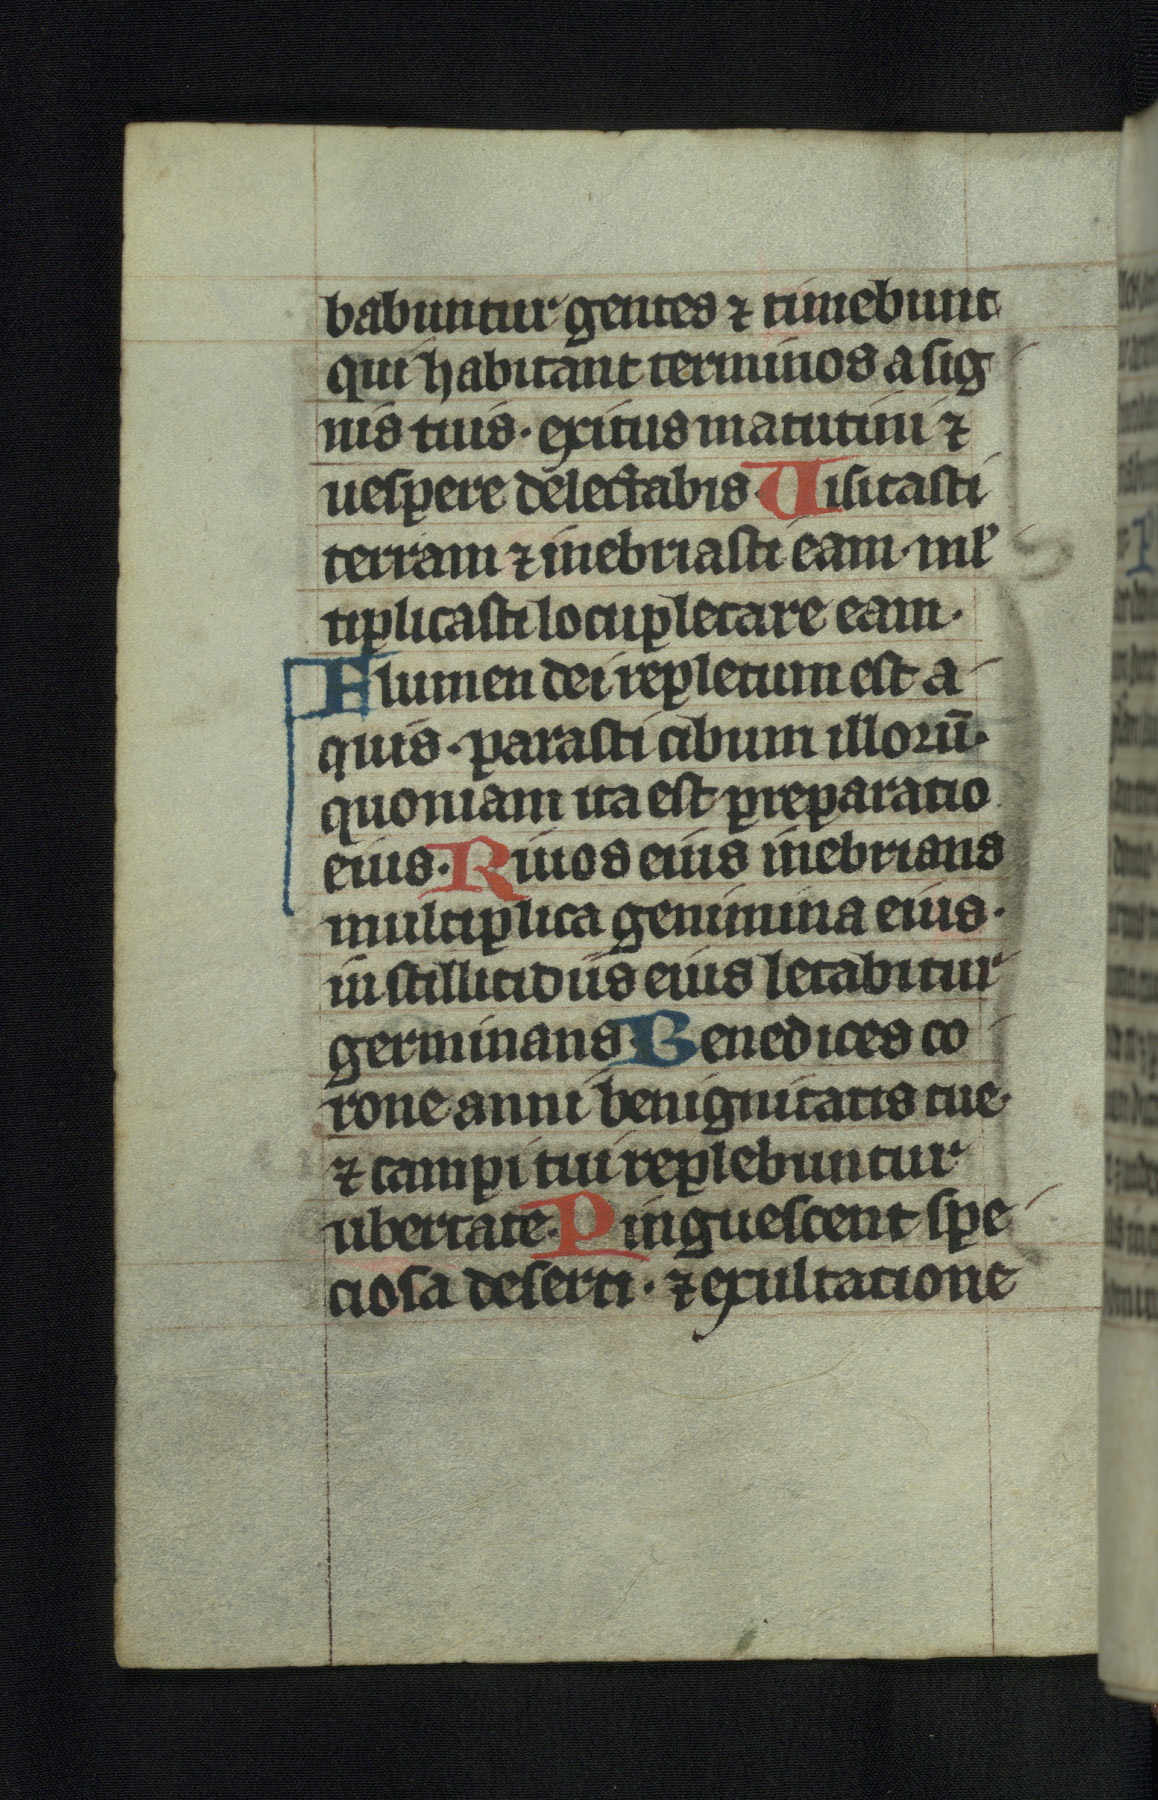 babuntur gentes ⁊ timebunt
qui habitant terminos a sig
nis tuis · exitus matutini ⁊
uespere delectabis · Uisitasti
terram ⁊ inebriasti eam · ml'
tiplicasti locupletare eam ·
Flumen dei repletum est a
quis · parasti cibum illorū ·
quoniam ita est preparatio
eius · Riuos eius inebrians
multiplica genimina eius ·
in stillicidiis eius letabitur
germinans · Benedices co
rone anni benignitatis tue ·
⁊ campi tui replebuntur
ubertate · Pinguescent spe
ciosa deserti · ⁊ exultatione